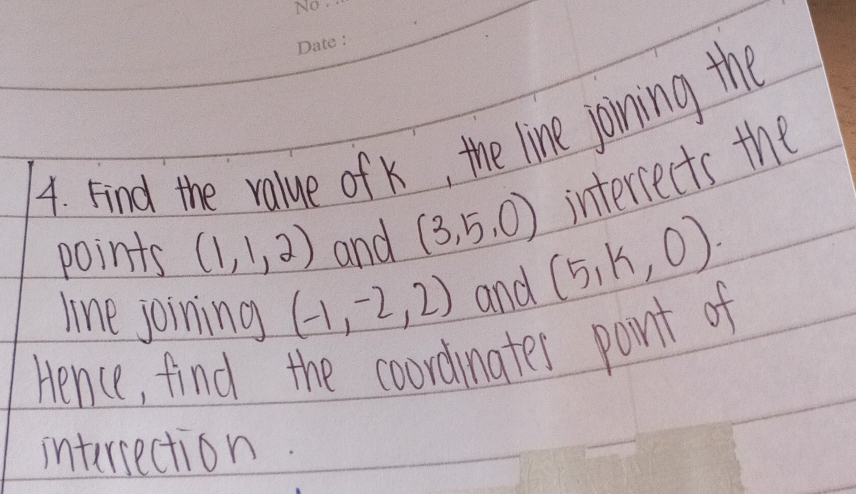 No...
Date:
4. Find the value of K, the line joining the
points (1,1,2) and (3,5,0) intersects the
line joining (-1,-2,2) and (5,K,0).
Hence, find the coordinates point of
intersection.